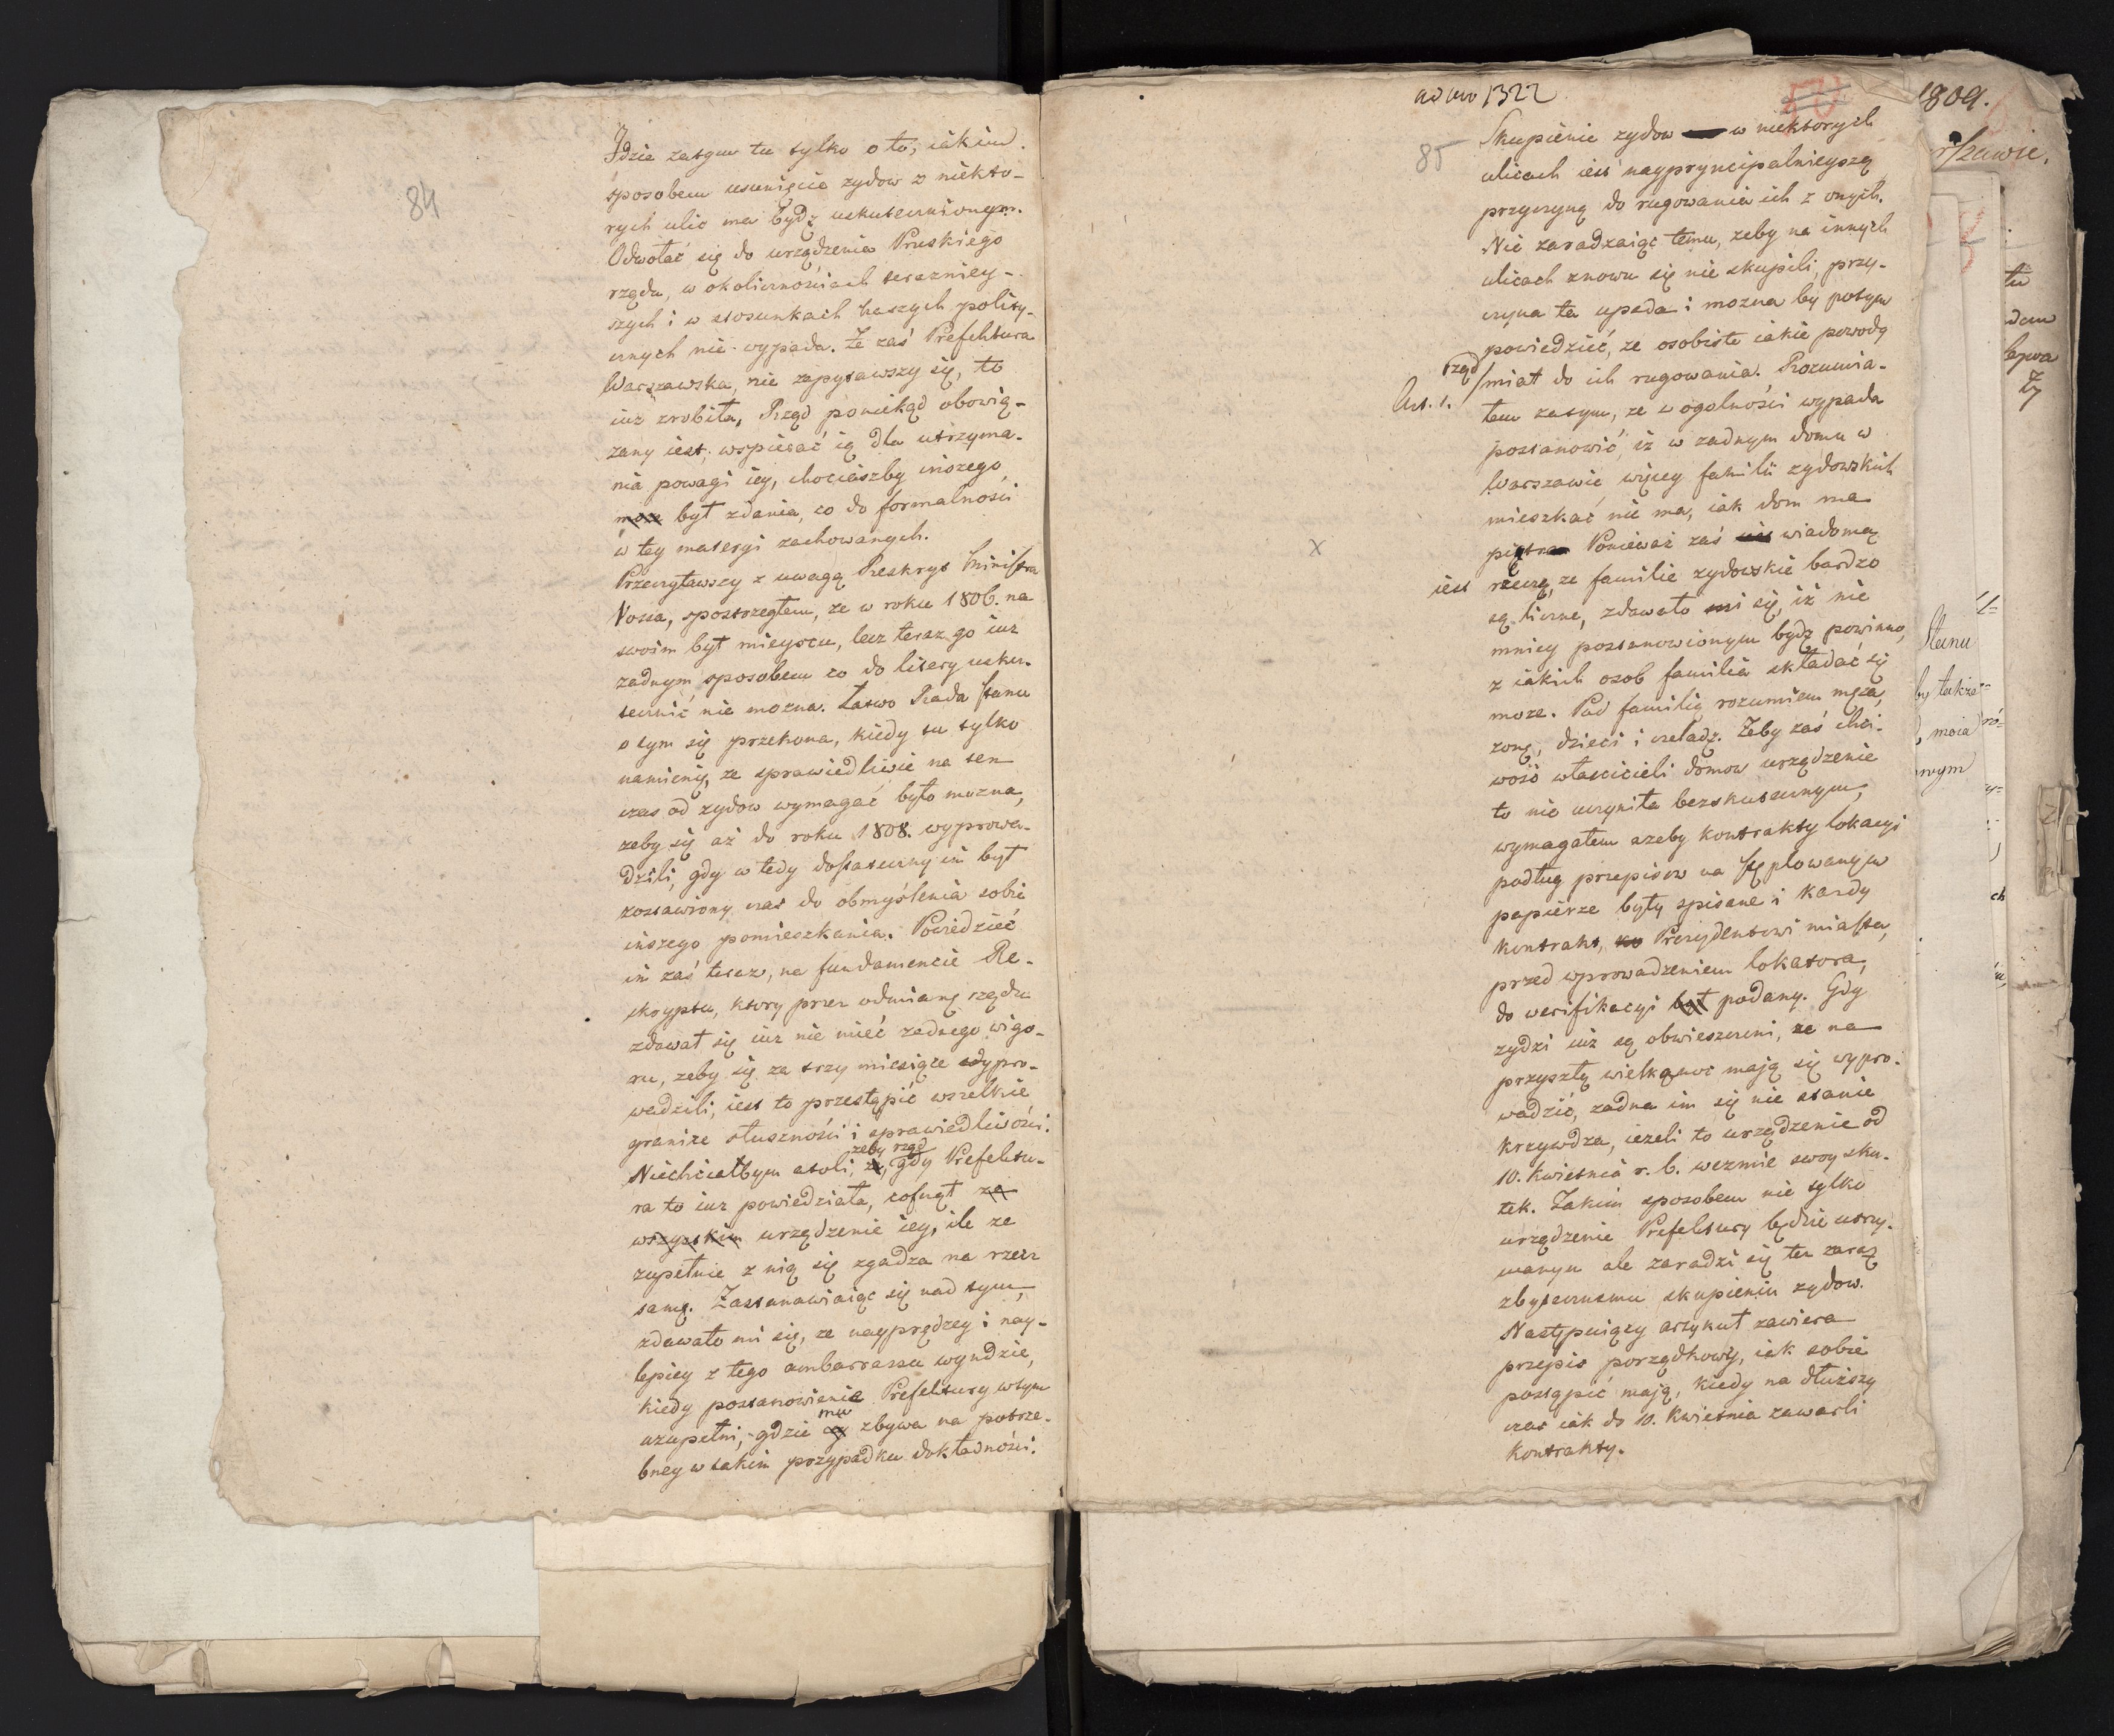 84
Idzie zatym tu tylko o to, iakim
sposobem usunięcie zydow z niekto-
rych ulic ma bydź uskutecznionym.
Odwołać się do urządzenia Pruskiego
rządu, w okolicznościach teraźniey-
szych i w stosunkach naszych polity-
cznych nie wypada. Że zaś Prefektura
Warszawska, nie zapytawszy się, to
iuz zrobiła, Rząd poniekąd obowią-
zany iest, wspierać ią dla utrzyma-
nia powagi iey, chociaszby inszego
moze był zdania, co do formalności
w tey materyi zachowanych.
Przeczytawszy z uwagą Reskrypt Ministra
Vossa, spostrzegłem, ze w roku 1806. na
swoim był mieyscu, lecz teraz go iuz
zadnym sposobem co do litery usku-
tecznić nie mozna. Łatwo Rada Stanu
o tym się przekona, kiedy tu tylko
namienię, ze sprawiedliwie na ten
czas od zydow wymagać było mozna,
zeby się aż do roku 1808. wyprowa-
dzili, gdy wtedy dostateczny im był
zostawiony czas do obmyślenia sobie
inszego pomieszkania. Powiedzieć
im zaś teraz, na fundamencie Re-
skryptu, ktory przez odmianę rządu
zdawał się iuz nie mieć zadnego wigo-
ru, zeby się za trzy miesiące wypro-
wadzili, iest to przestąpić wszelkie
granice słuszności i sprawiedliwości.
zeby rząd
Niechciałbym atoli, ze, gdy Prefektu-
ra to iuz powiedziała, cofnął ze
wszystkim urządzenie iey, ile ze
zupełnie z nią się zgadza na rzecz
samą. Zastanawiaiąc się nad tym,
zdawało mi się, ze nayprędzey i nay-
lepiey z tego ambarrassu wyndzie,
kiedy postanowienie Prefektury w tym
mu
uzupełni, gdzie zbywa na potrze-
bney w takim przypadku dokładności.
ad nro 1322
85
Skupienie zydow w niektorych
ulicach iest nayprincypalnieyszą
przyczyną do rugowania ich z onych.
Nie zaradzaiąc temu, zeby na innych
ulicach znowu się nie skupili, przy-
czyna ta upada i mozna by potym
powiedzieć, ze osobiste iakie powody
rząd
miał do ich rugowania. Rozumia-
Art. 1.
łem zatym, ze w ogolności wypada
postanowić, iz w zadnym domu w
Warszawie więcey familii zydowskich
mieszkać nie ma, iak dom ma
piętra Ponieważ zaś wiadomą
iest rzeczą, ze familie zydowskie bardzo
są liczne, zdawało mi się, iż nie
mniey postanowionym bydź powinno,
z iakich osob familia składać się
moze. Pod familią rozumiem męza,
zonę, dzieci i czeladź. Żeby zaś chci-
wość właścicieli domow urządzenie
to nie uczyniła bezskutecznym,
wymagałem azeby kontrakty lokacyi
podług przepisow na stęplowanym
papierze były spisane i kazdy
kontrakt, Prezydentowi miasta,
przed wprowadzeniem lokatora,
do werifikacyi był podany. Gdy
zydzi iuż są obwieszczeni, ze na
przyszłą wielkąnoc mają się wypro-
wadzić, zadna im się nie stanie
krzywdza, iezeli to urządzenie od
10. Kwietnia r. b. wezmie swoy sku-
tek. Takim sposobem nie tylko
urządzenie Prefektury będzie utrzy-
manym ale zaradzi się tu zaraz
zbytecznemu skupieniu zydow.
Następuiący artykuł zawiera
przepis porządkowy, iak sobie
postąpić mają, kiedy na dłuższy
czas iak do 10. Kwietnia zawarli
kontrakty.
x
1809.
rszawie.
Stanu
by takze
moia